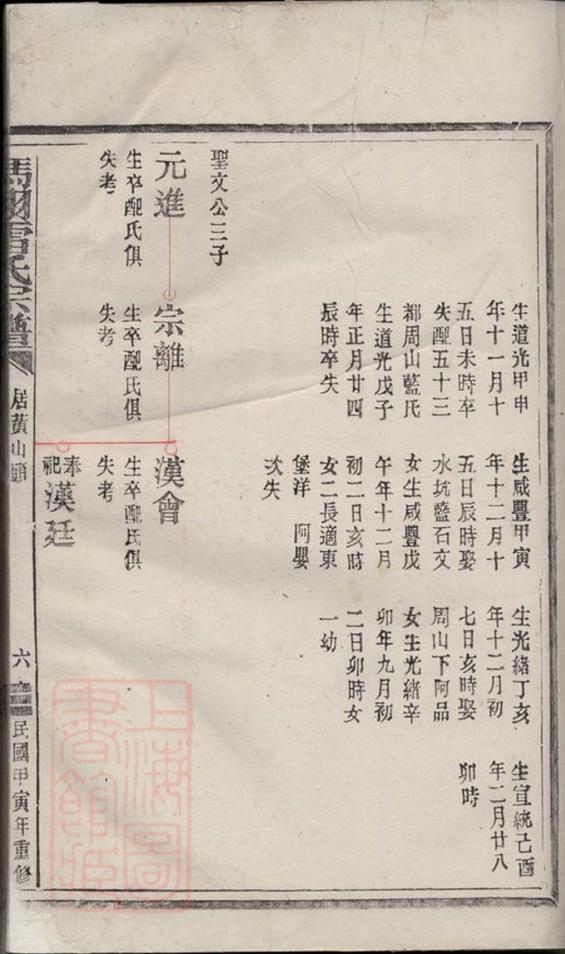 生道光甲申
年十一月十
五日未時卒
失配五十三
都周山藍氏
生道光戊子
年正月廿四
辰時卒失
生咸豐甲寅
年十二月十
五日辰時娶
水坑藍石文
女生咸豐戊
午年十二月
初二日亥時
女二長適東
堡洋 阿嬰
次失
生光緒丁亥
年十二月初
七日亥時娶
周山下阿品
女生光緒辛
卯年九月初
二日卯時女
一幼
生宣統己酉
年二月廿八
卯時
聖文公三子
元進
生卒配氏俱
失考
宗離
生卒配氏俱
失考
漢會
生卒配氏俱
失考
奉祀
漢廷
馮翊雷氏宗譜
居黃山頭
六
民國甲寅年重修
上海圖書館藏